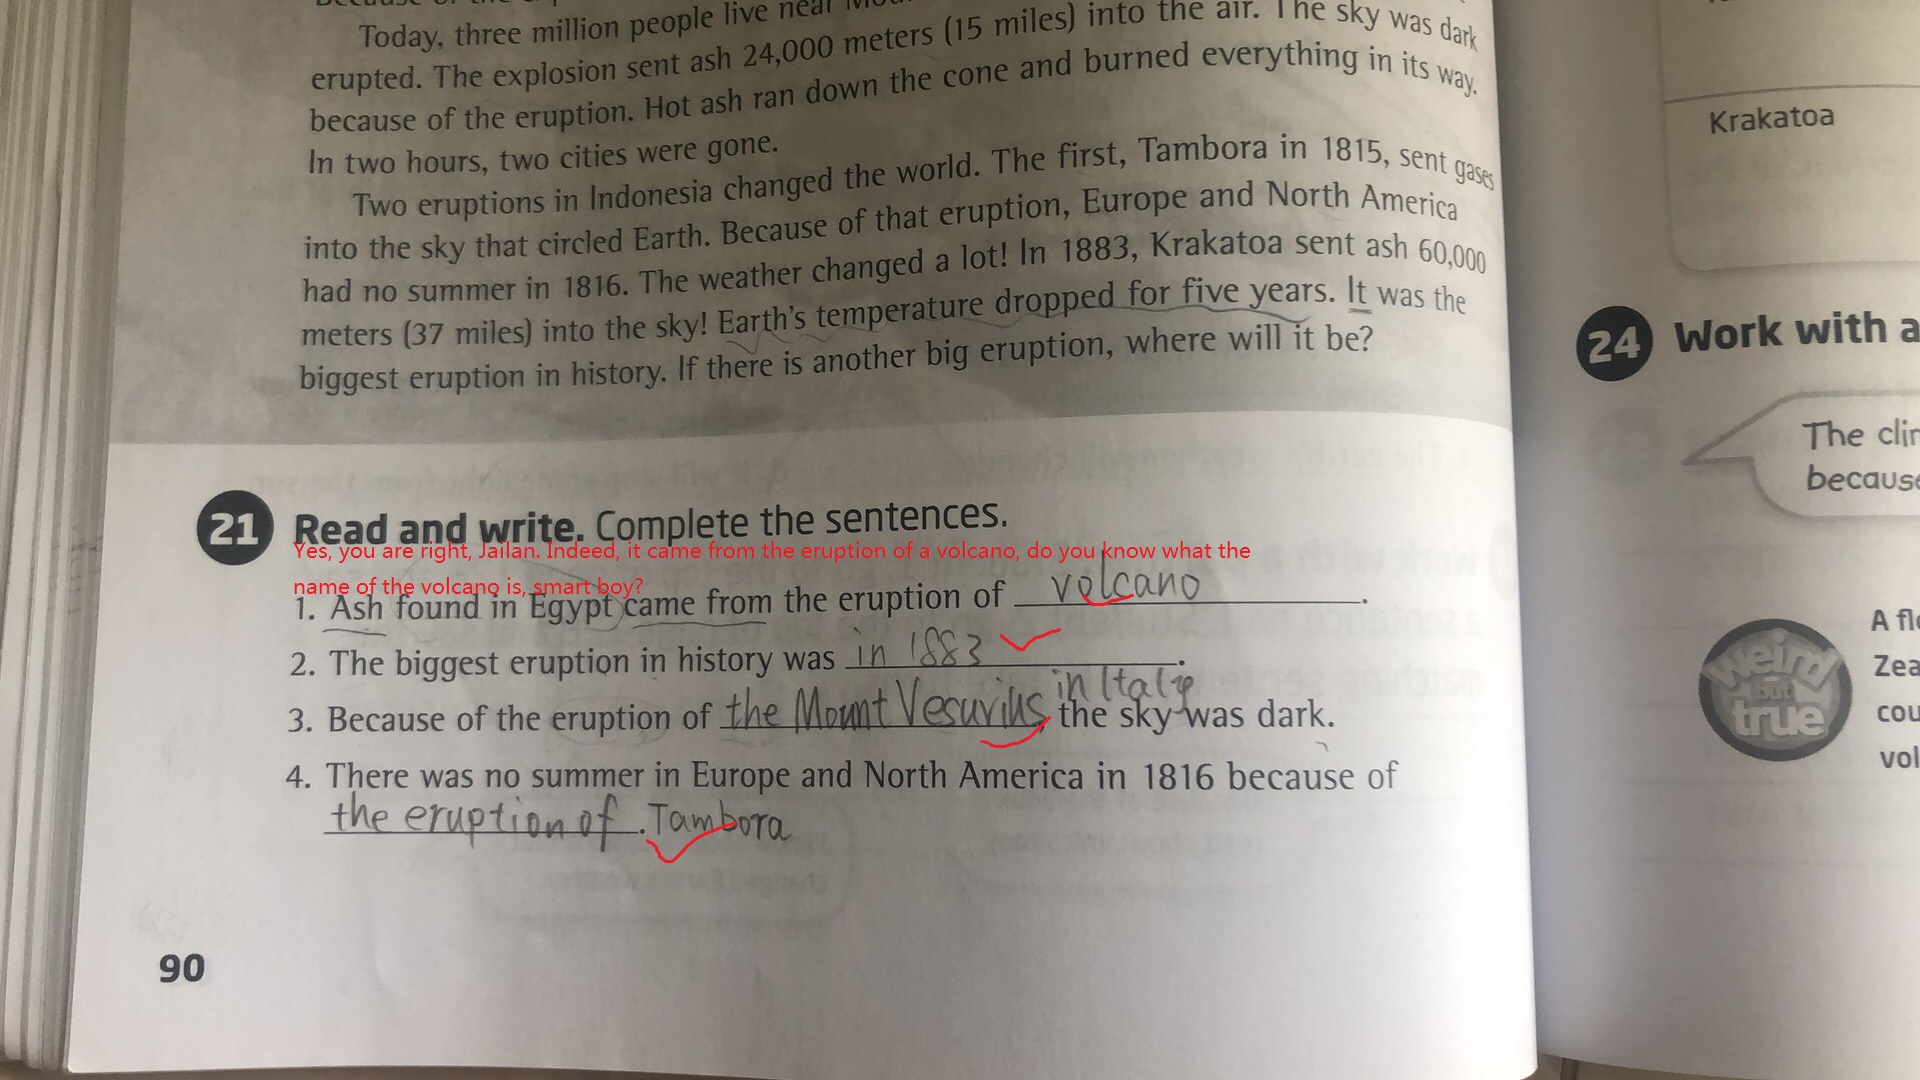 Today, three million people live near
erupted. The explosion sent ash 24,000 meters (15 miles) into the air. The sky was dark
because of the eruption. Hot ash ran down the cone and burned everything in its way.
In two hours, two cities were gone.
Two eruptions in Indonesia changed the world. The first, Tambora in 1815, sent gases
into the sky that circled Earth. Because of that eruption, Europe and North America
had no summer in 1816. The weather changed a lot! In 1883, Krakatoa sent ash 60,000
meters (37 miles) into the sky! Earth's temperature dropped for five years. It was the
biggest eruption in history. If there is another big eruption, where will it be?
21 Read and write. Complete the sentences.
Yes, you are right, Jailan. Indeed, it came from the eruption of a volcano, do you know what the
name of the volcano is, smart boy?
1. Ash found in Egypt came from the eruption of volcano.
2. The biggest eruption in history was in 1883.
in Italy
3. Because of the eruption of the Mount Vesuvius, the sky was dark.
4. There was no summer in Europe and North America in 1816 because of
the eruption of. Tambora
90
Krakatoa
24 Work with a
The
because
weird
but
true
A
cou